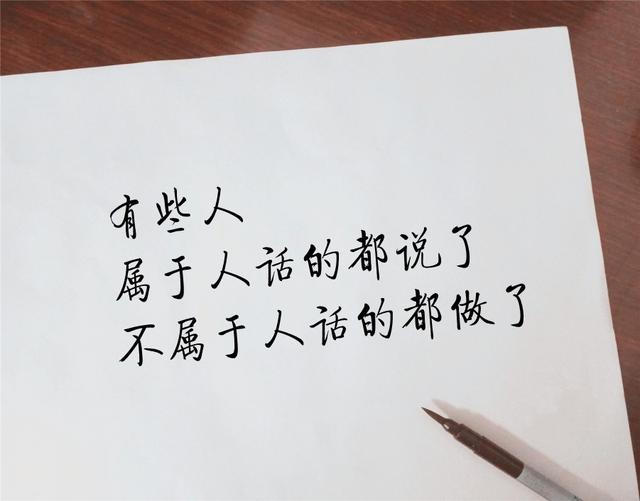 有些人
属于人话的都说了
不属于人话的都做了